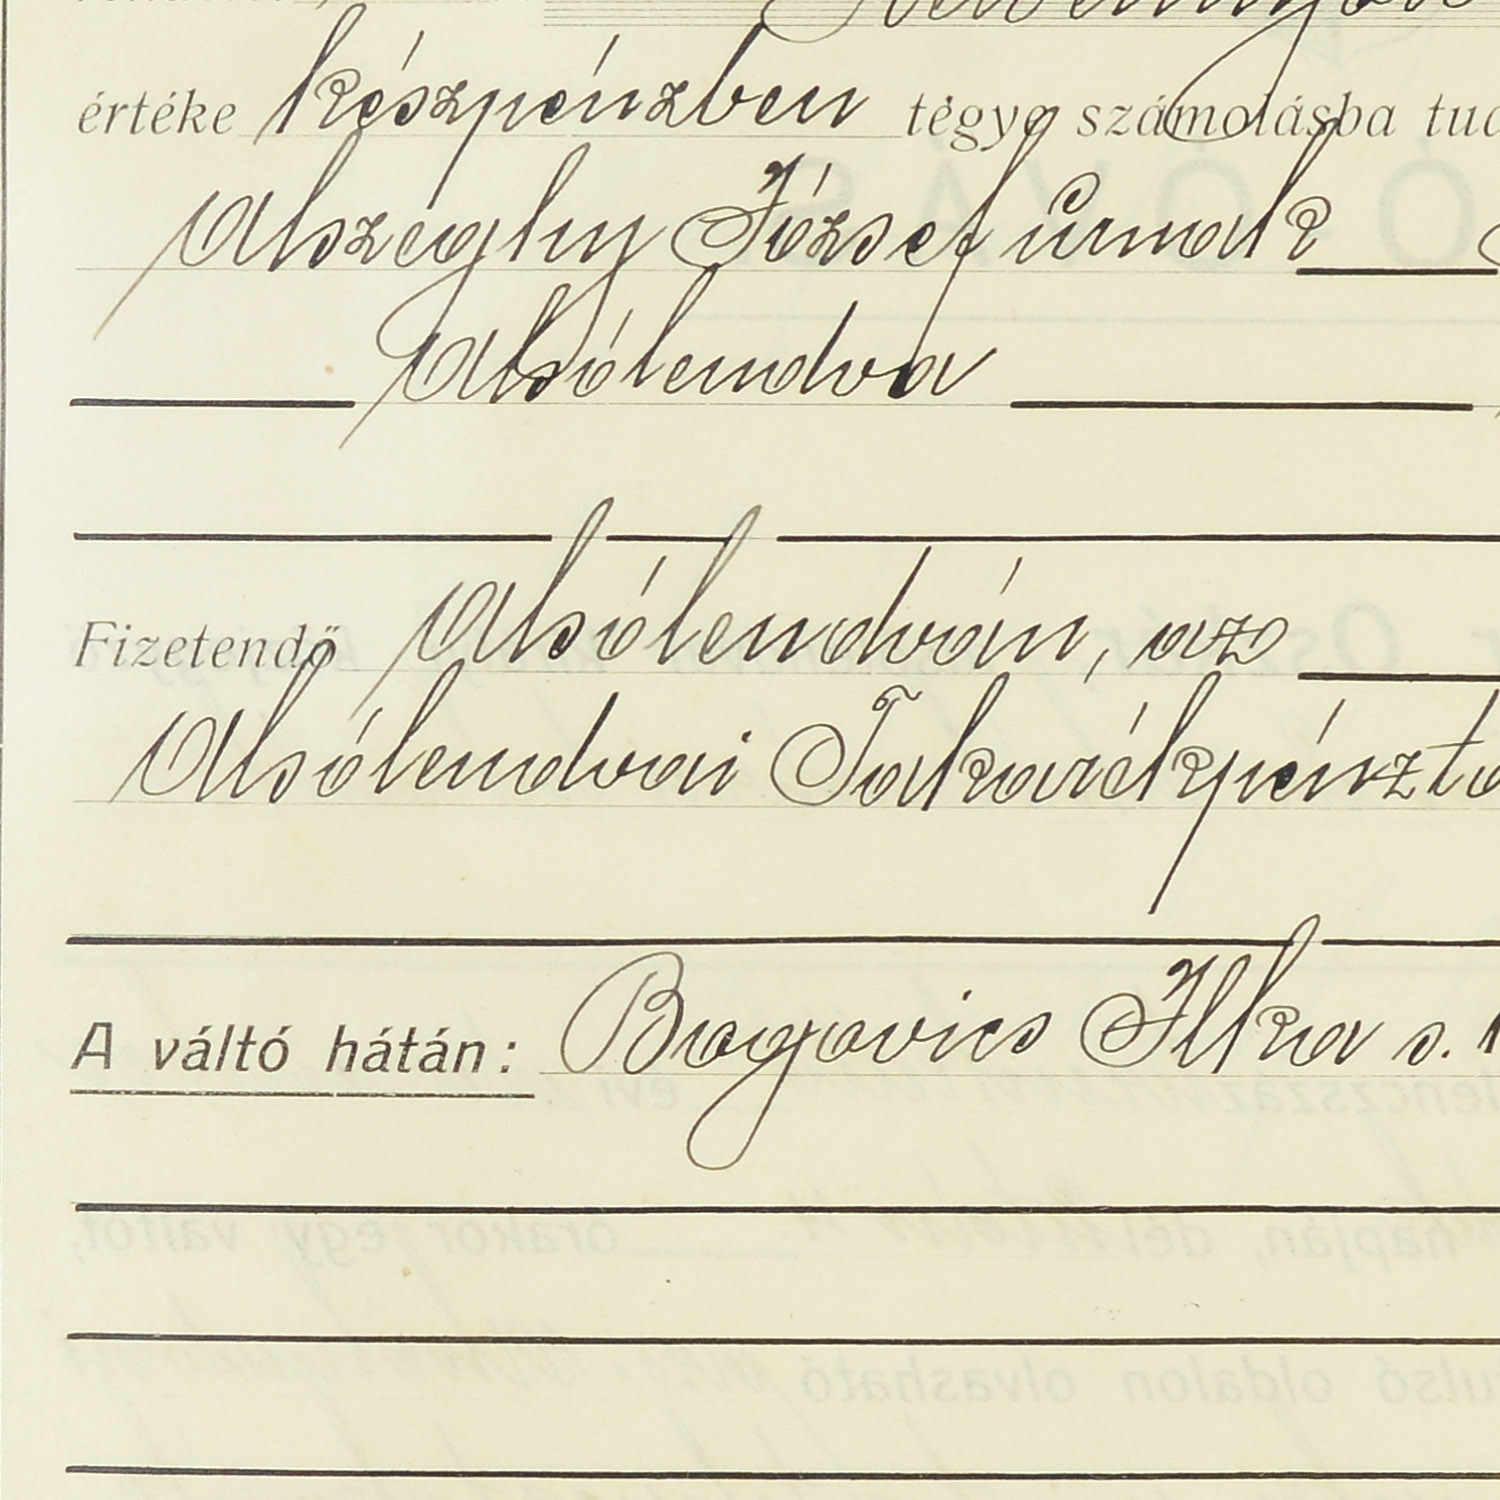 értéke készpénzben tégye számolásba
Alszeghy József úrnak
Alsólendva
Fizetendő Alsólendván, az
Alsólendvai Takarékpénztá
A váltó hátán: Bogovics Ilka s.